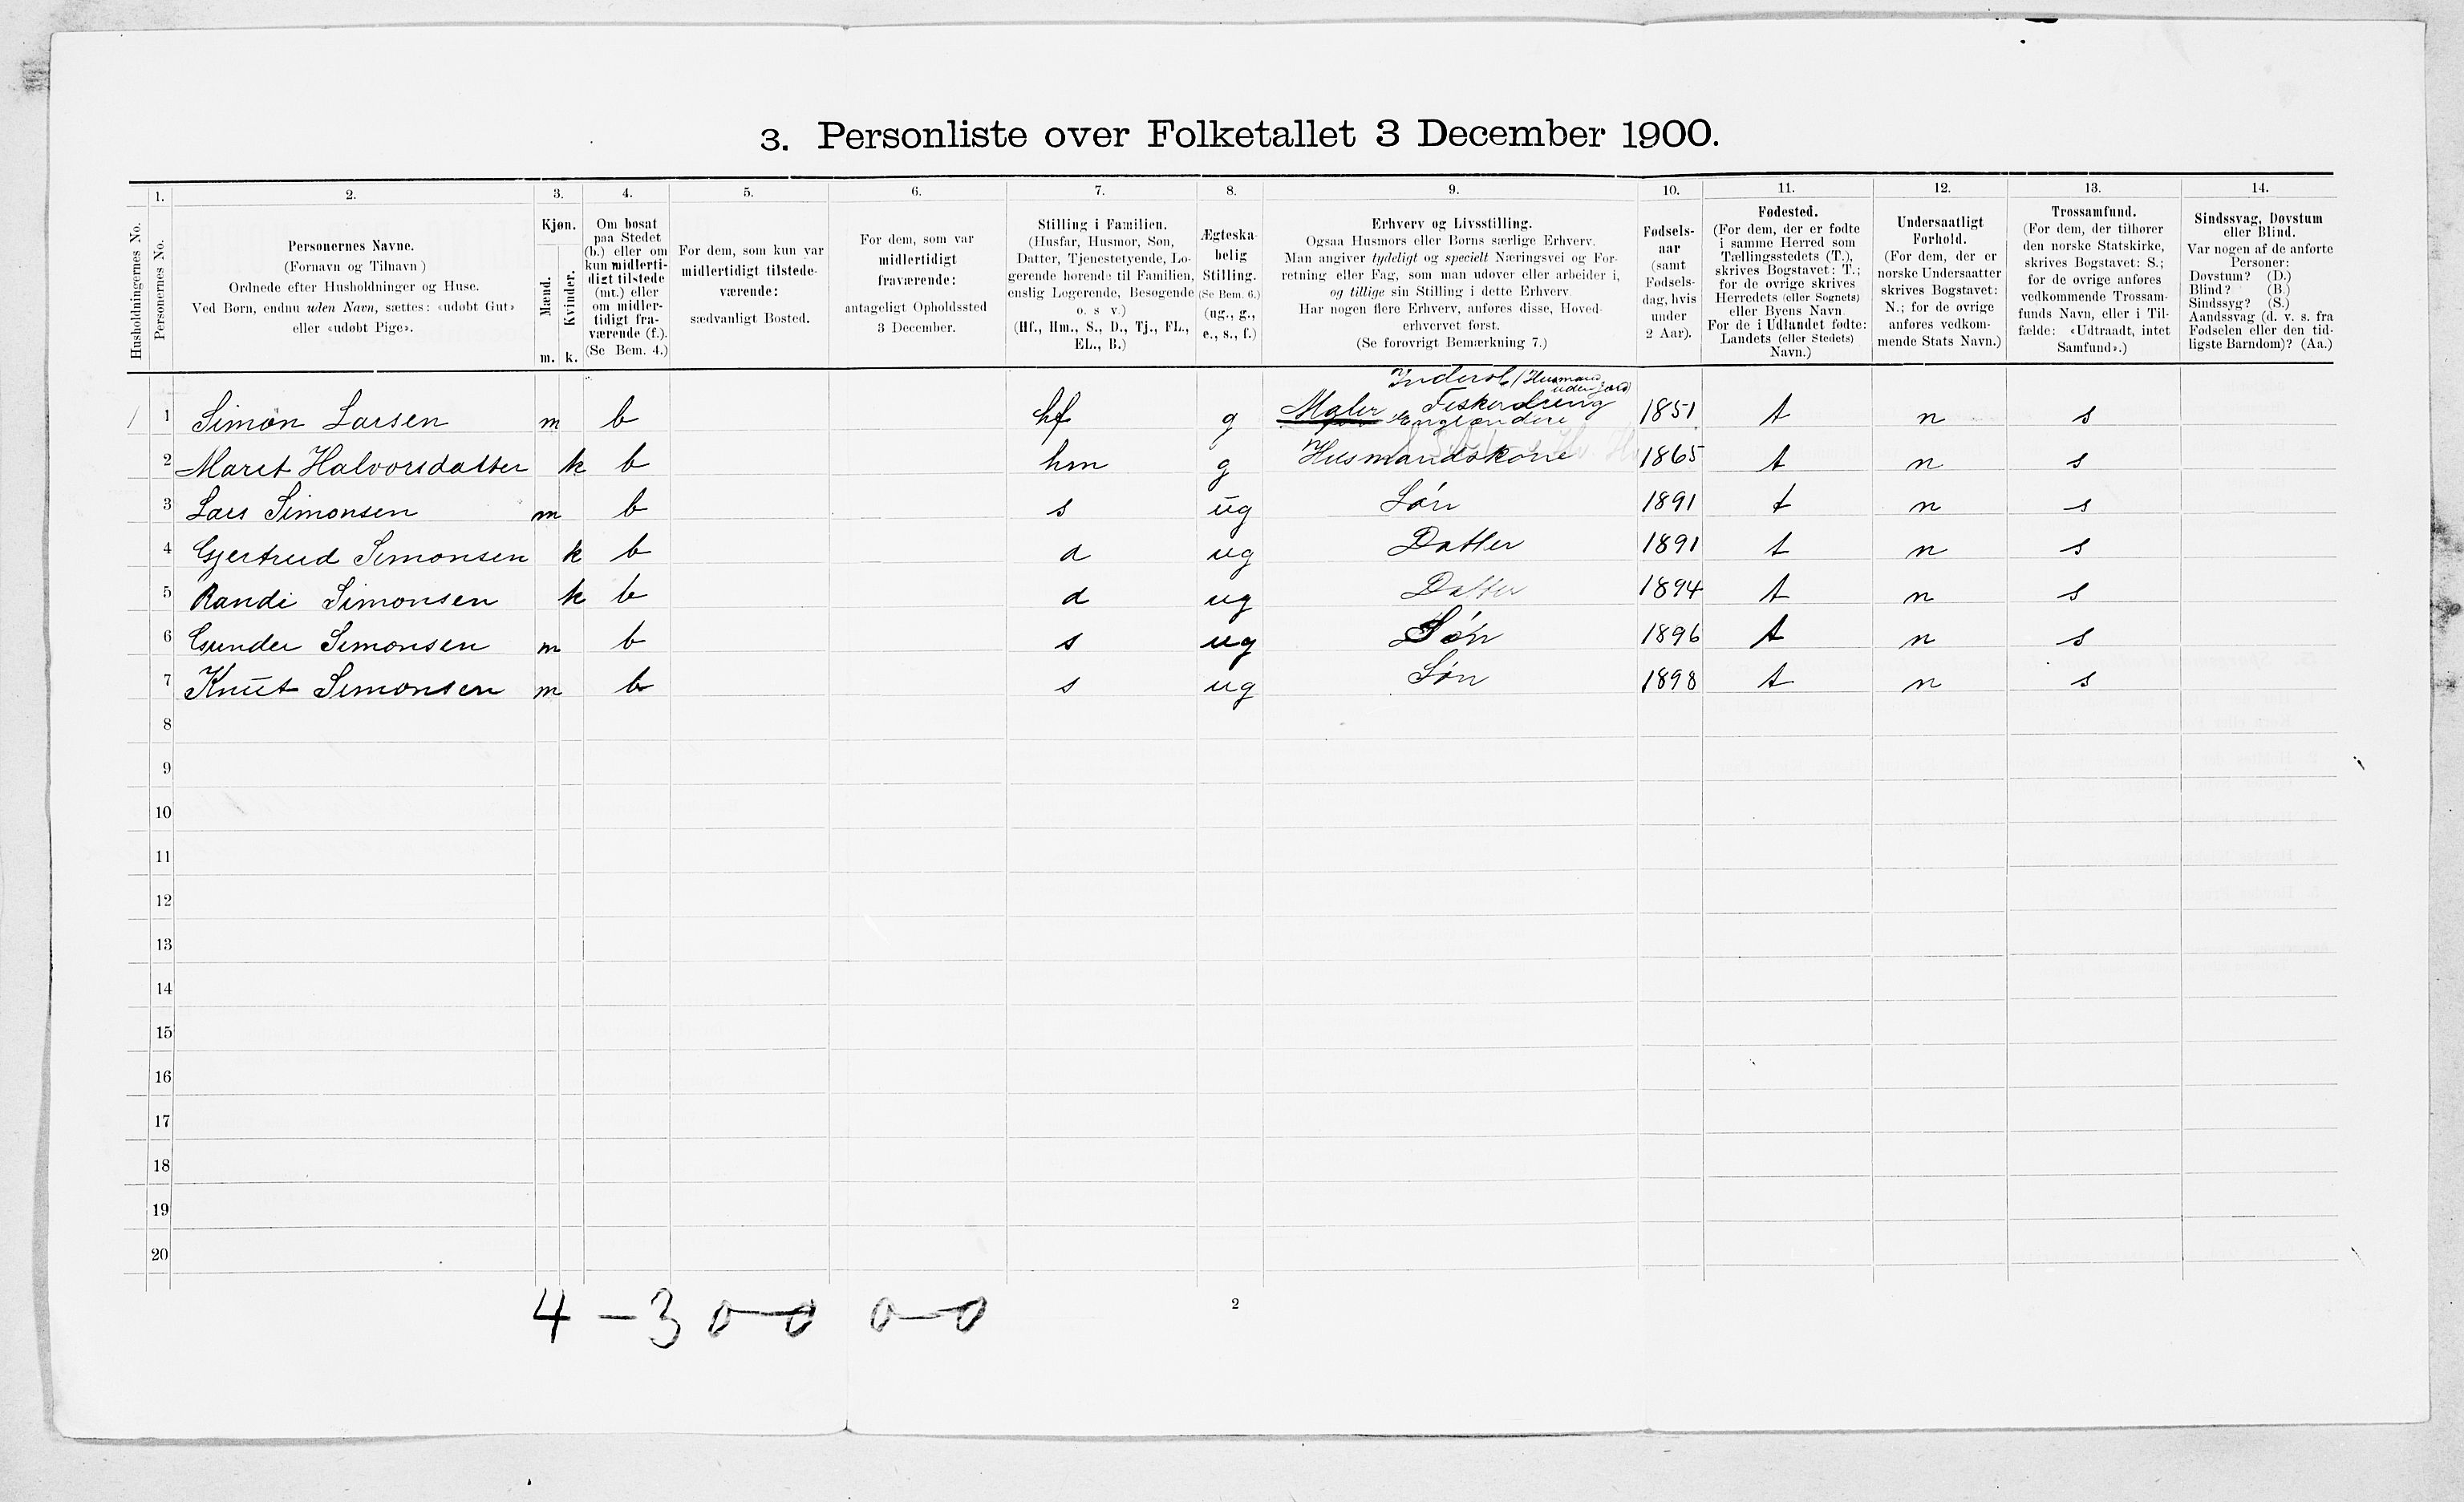 3. Personliste over Folketallet 3 December 1900.
1. 2. 3. 4. 5. 6. 7. 8. 9. 10. 11. 12. 13. 14.
Husholdningernes No.
Personernes No.
Personernes Navne.
(Fornavn og Tilnavn)
Ordnede efter Husholdninger og Huse.
Ved Børn, endnu uden Navn, sættes: «udøbt Gut»
eller «udøbt Pige».
Kjøn.
Mænd.
Kvinder.
m. k.
Om bosat
paa Stedet
(b.) eller om
kun midlerti-
digt tilstede
(mt.) eller
om midler-
tidigt fra-
værende (f.).
(Se Bem. 4.)
For dem, som kun var
midlertidigt tilstede-
værende:
sædvanligt Bosted.
For dem, som var
midlertidigt
fraværende:
antageligt Opholdssted
3 December.
Stilling i Familien.
(Husfar, Husmor, Søn,
Datter, Tjenestetyende, Lo-
gerende hørende til Familien,
enslig Logerende, Besøgende
o. s. v.)
(Hf., Hm., S., D., Tj., FL.,
EL., B.)
Ægteska-
belig
Stilling.
(Se Bem. 6.)
(ug., g.,
e., s., f.)
Erhverv og Livsstilling.
Ogsaa Husmors eller Børns særlige Erhverv.
Man angiver tydeligt og specielt Næringsvei og For-
retning eller Fag, som man udøver eller arbeider i,
og tillige sin Stilling i dette Erhverv.
Har nogen flere Erhverv, anføres disse, Hoved-
erhvervet først.
(Se forøvrigt Bemærkning 7.)
Fødsels-
aar
(samt
Fødsels-
dag, hvis
under
2 Aar).
Fødested.
(For dem, der er fødte
i samme Herred som
Tællingsstedets (T.),
skrives Bogstavet: T.;
for de øvrige skrives
Herredets (eller Sognets)
eller Byens Navn.
For de i Udlandet fødte:
Landets (eller Stedets)
Navn.)
Undersaatligt
Forhold.
(For dem, der er
norske Undersaatter
skrives Bogstavet:
N.; for de øvrige
anføres vedkom-
mende Stats Navn.)
Trossamfund.
(For dem, der tilhører
den norske Statskirke,
skrives Bogstavet: S.;
for de øvrige anføres
vedkommende Trossam-
funds Navn, eller i Til-
fælde: «Udtraadt, intet
Samfund».)
Sindssvag, Døvstum
eller Blind.
Var nogen af de anførte
Personer:
Døvstum? (D.)
Blind? (B.)
Sindssyg? (S.)
Aandssvag (d. v. s. fra
Fødselen eller den tid-
ligste Barndom)? (Aa.)
(Husmand
uden jord)
1 1 Simon Larsen m b hf g Maler Engländere 1851 t n s
2 Marit Halvorsdatter k b hm g Husmandskone 1865 t n s
3 Lars Simonsen m b s ug Søn 1891 t n s
4 Gjertrud Simonsen k b d ug Datter 1891 t n s
5 Randi Simonsen k b d ug Datter 1894 t n s
6 Gunder Simonsen m b s ug Søn 1896 t n s
7 Knut Simonsen m b s ug Søn 1898 t n s
8
9
10
11
12
13
14
15
16
17
18
19
20
4 – 3 0–0 0–0
2